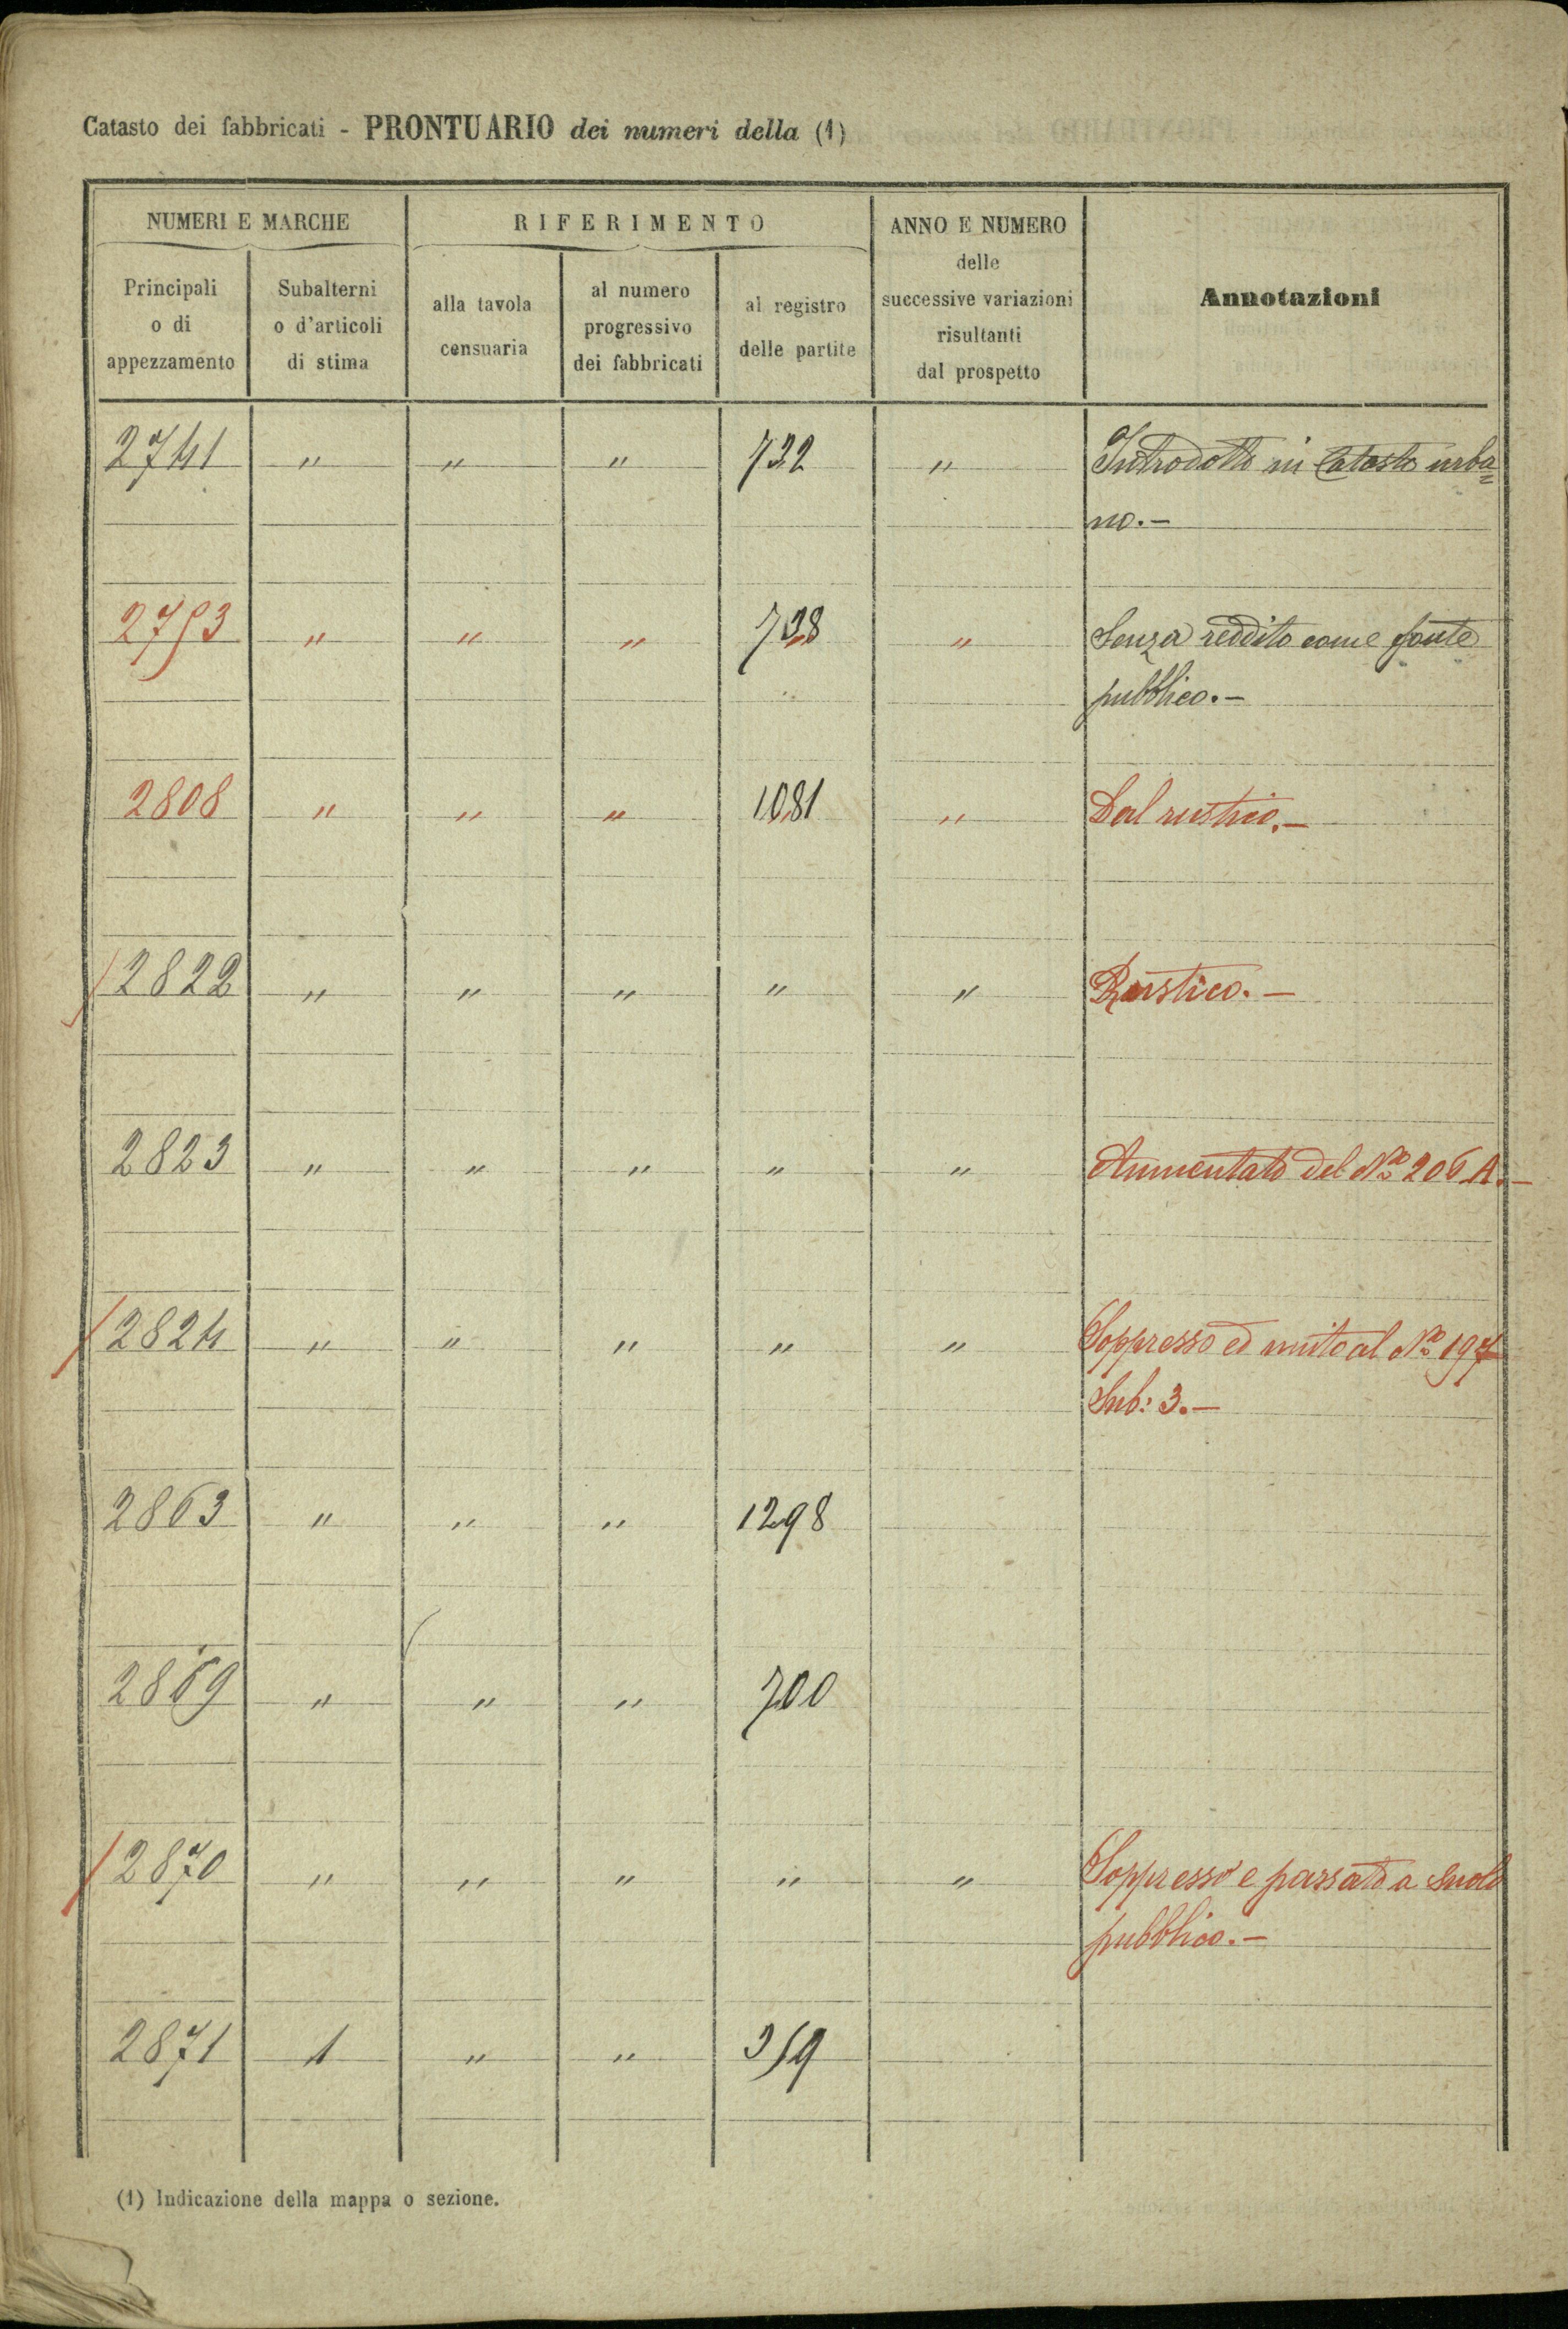 Catasto dei fabbricati - PRONTUARIO dei numeri della (1)
NUMERI E MARCHE
RIFERIMENTO
ANNO E NUMERO
delle
successive variazioni
risultanti
dal prospetto
Annotazioni
Principali
o di
appezzamento
Subalterni
o d'articoli
di stima
alla tavola
censuaria
al numero
progressivo
dei fabbricati
al registro
delle partite
2741 " " " 732 " Introdotto in Catasto urba=
no.-
2753 " " " 738 " Senza reddito come fonte
pubblico.-
2808 " " " 1081 " Dal rustico.-
2822 " " " " " Rustico.-
2823 " " " " " Aumentato del No 206 A.-
2824 " " " " " Soppresso ed unito al No 197
Sub: 3.-
2863 " " " 1298
2869 " " " 700
2870 " " " " " Soppresso e passato a suolo
pubblico.-
2871 1 " " 359
(1) Indicazione della mappa o sezione.